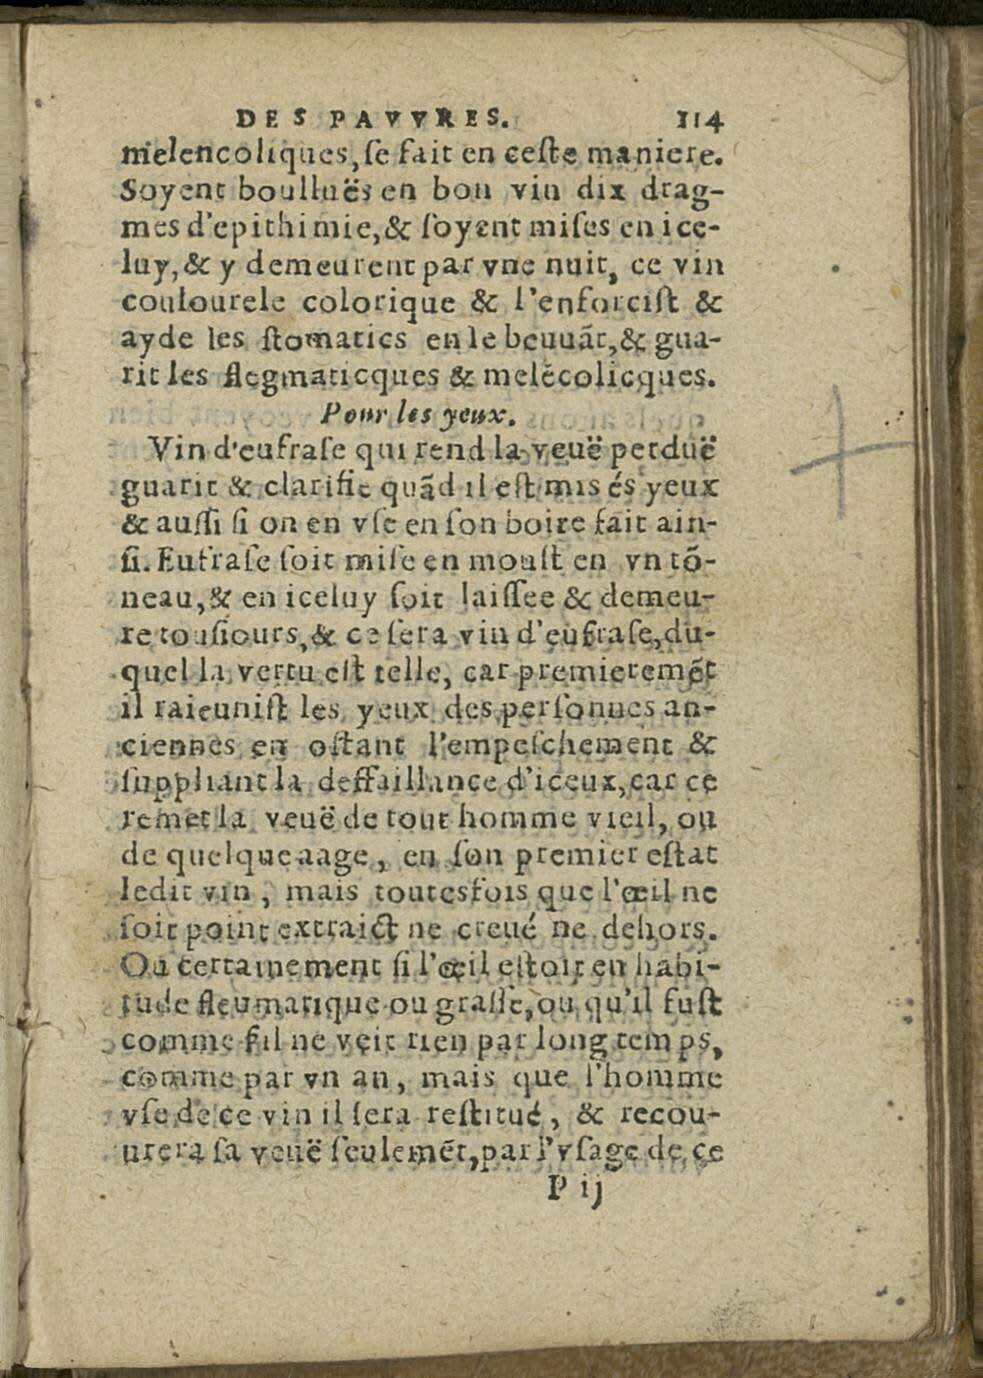 DES PAVVRES. 114
melencoliques, ſe fait en ceſte maniere.
Soyent boulluës en bon vin dix drag-
mes d'epithimie, & ſoyent miſes en ice-
luy, & y demeurent par vne nuit, ce vin
coulourele colorique & l'enforciſt &
ayde les ſtomatics en le beuuãt, & gua-
rit les flegmaticques & melẽcolicques.
Pour les yeux.
Vin d'eufraſe qui rend la veuë perduë
guarit & clarifie quãd il eſt mis és yeux
& auſſi ſi on en vſe en ſon boire fait ain-
ſi. Eufraſe ſoit miſe en mouſt en vn tõ-
neau, & en iceluy ſoit laiſſee & demeu-
re touſiours, & ce ſera vin d'eufraſe, du-
quel la vertu eſt telle, car premieremẽt
il raieuniſt les yeux des perſonnes an-
ciennes en oſtant l'empeſchement &
ſuppliant la deffaillance d'iceux, car ce
remet la veuë de tout homme vieil, ou
de quelque aage, en ſon premier eſtat
ledit vin, mais toutesfois que l'œil ne
ſoit point extraict ne creué ne dehors.
Ou certainement ſi l'œil eſtoit en habi-
tude fleumatique ou graſſe, ou qu'il fuſt
comme ſil ne veit rien par long temps,
comme par vn an, mais que l'homme
vſe de ce vin il ſera reſtitué, & recou-
urera ſa veuë ſeulemẽt, par l'vſage de ce
P ij